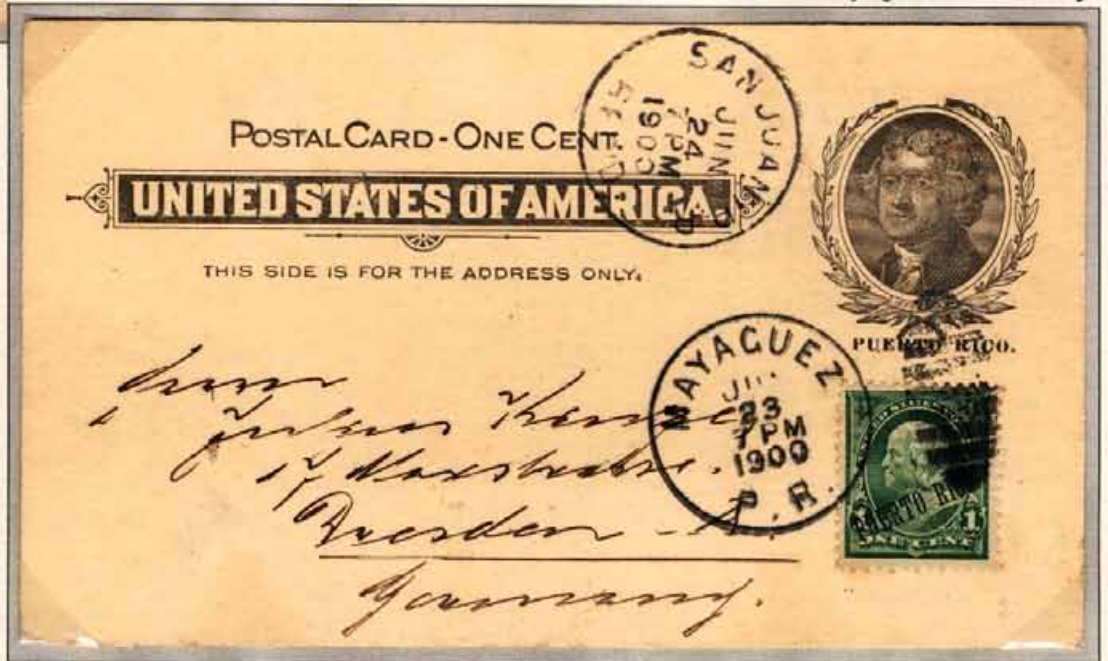 POSTAL CARD - ONE CENT.
UNITED STATES OF AMERICA.
THIS SIDE IS FOR THE ADDRESS ONLY.
SAN JUAN
JUN
24
7 PM
1900
PUERTO RICO.
MAYAGUEZ
23
7 PM
1900
P.R.
PUERTO RICO
1 1
ONE CENT
Herrn
17
Dresden
Germany.